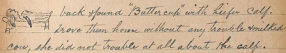 back & found "Buttercup with heifer calf.
drove them home without any trouble & milked
cow, she did not trouble at all about the calf.